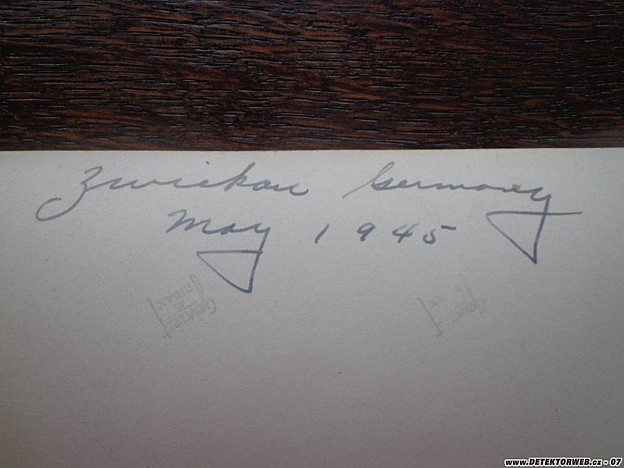 Zwickau Germany
May 1945
GEVAERT
RIDAX
www.DETEKTORWEB.cz - 07